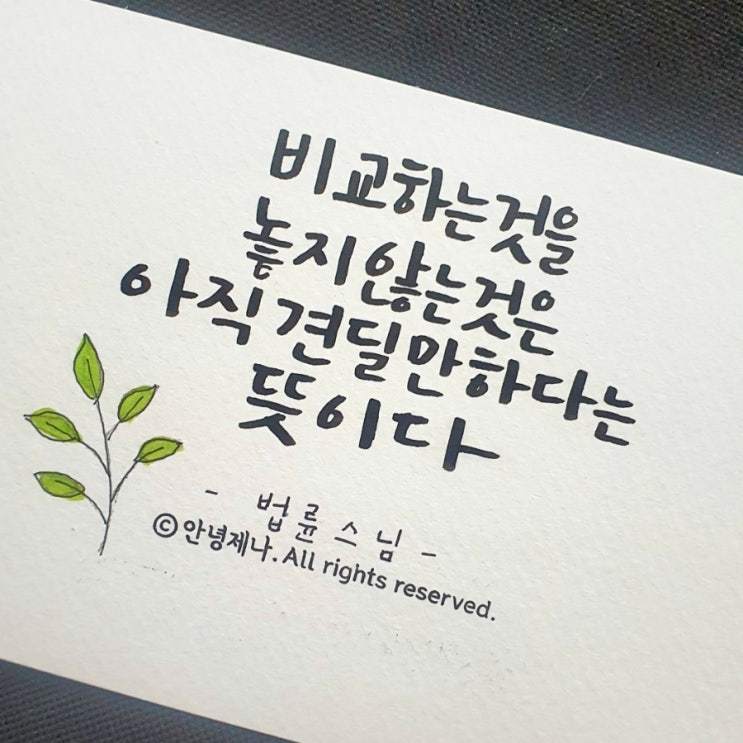 비교하는것을
놓지않는것은
아직견딜만하다는
뜻이다
- 법륜스님-
©안녕제나.All rights reserved.